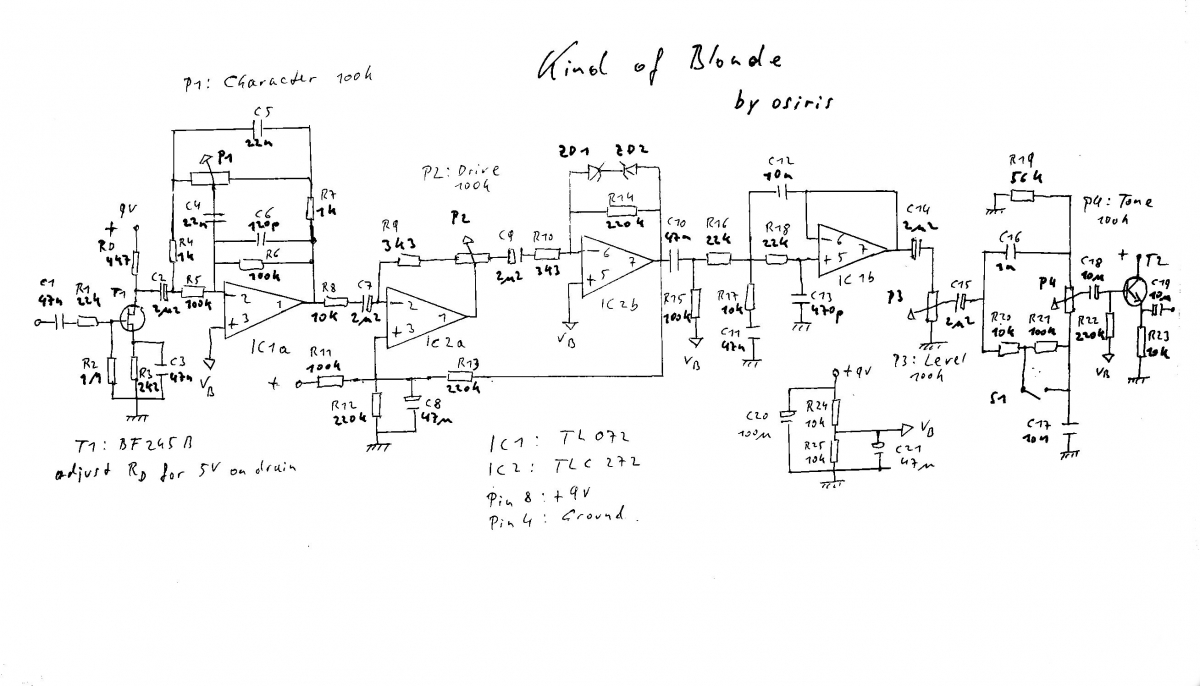 Kind of Blonde
by osiris
P1: Character 100k
C5
22n
P1
C4
22n
C6
120p
R7
1k
R4
1k
R6
100k
9V
+
RD
4k7
C2
2µ2
R5
100k
C1
47n
R1
22k
T1
R2
1M
R3
2k2
C3
47n
VB
- 2
+ 3
1
IC1a
R8
10k
C7
2µ2
P2: Drive
100k
R9
3k3
P2
C9
2µ2
R10
3k3
- 2
+ 3
1
IC2a
R11
100k
+
R12
220k
C8
47µ
R13
220k
ZD1
ZD2
R14
220k
- 6
+ 5
7
IC2b
VB
C10
47n
R15
100k
VB
R16
22k
C12
10n
R18
22k
R17
10k
C11
47n
C13
470p
- 6
+ 5
7
IC1b
C14
2µ2
P3
P3: Level
100k
C15
2µ2
R19
56k
C16
1n
P4: Tone
100k
P4
R20
10k
R21
100k
S1
C17
10n
C18
10µ
R22
220k
VB
+
T2
C19
10µ
R23
10k
+9V
C20
100µ
R24
10k
R25
10k
VB
C21
47µ
T1: BF245B
adjust RD for 5V on drain
IC1: TL072
IC2: TLC272
Pin 8: +9V
Pin 4: Ground.